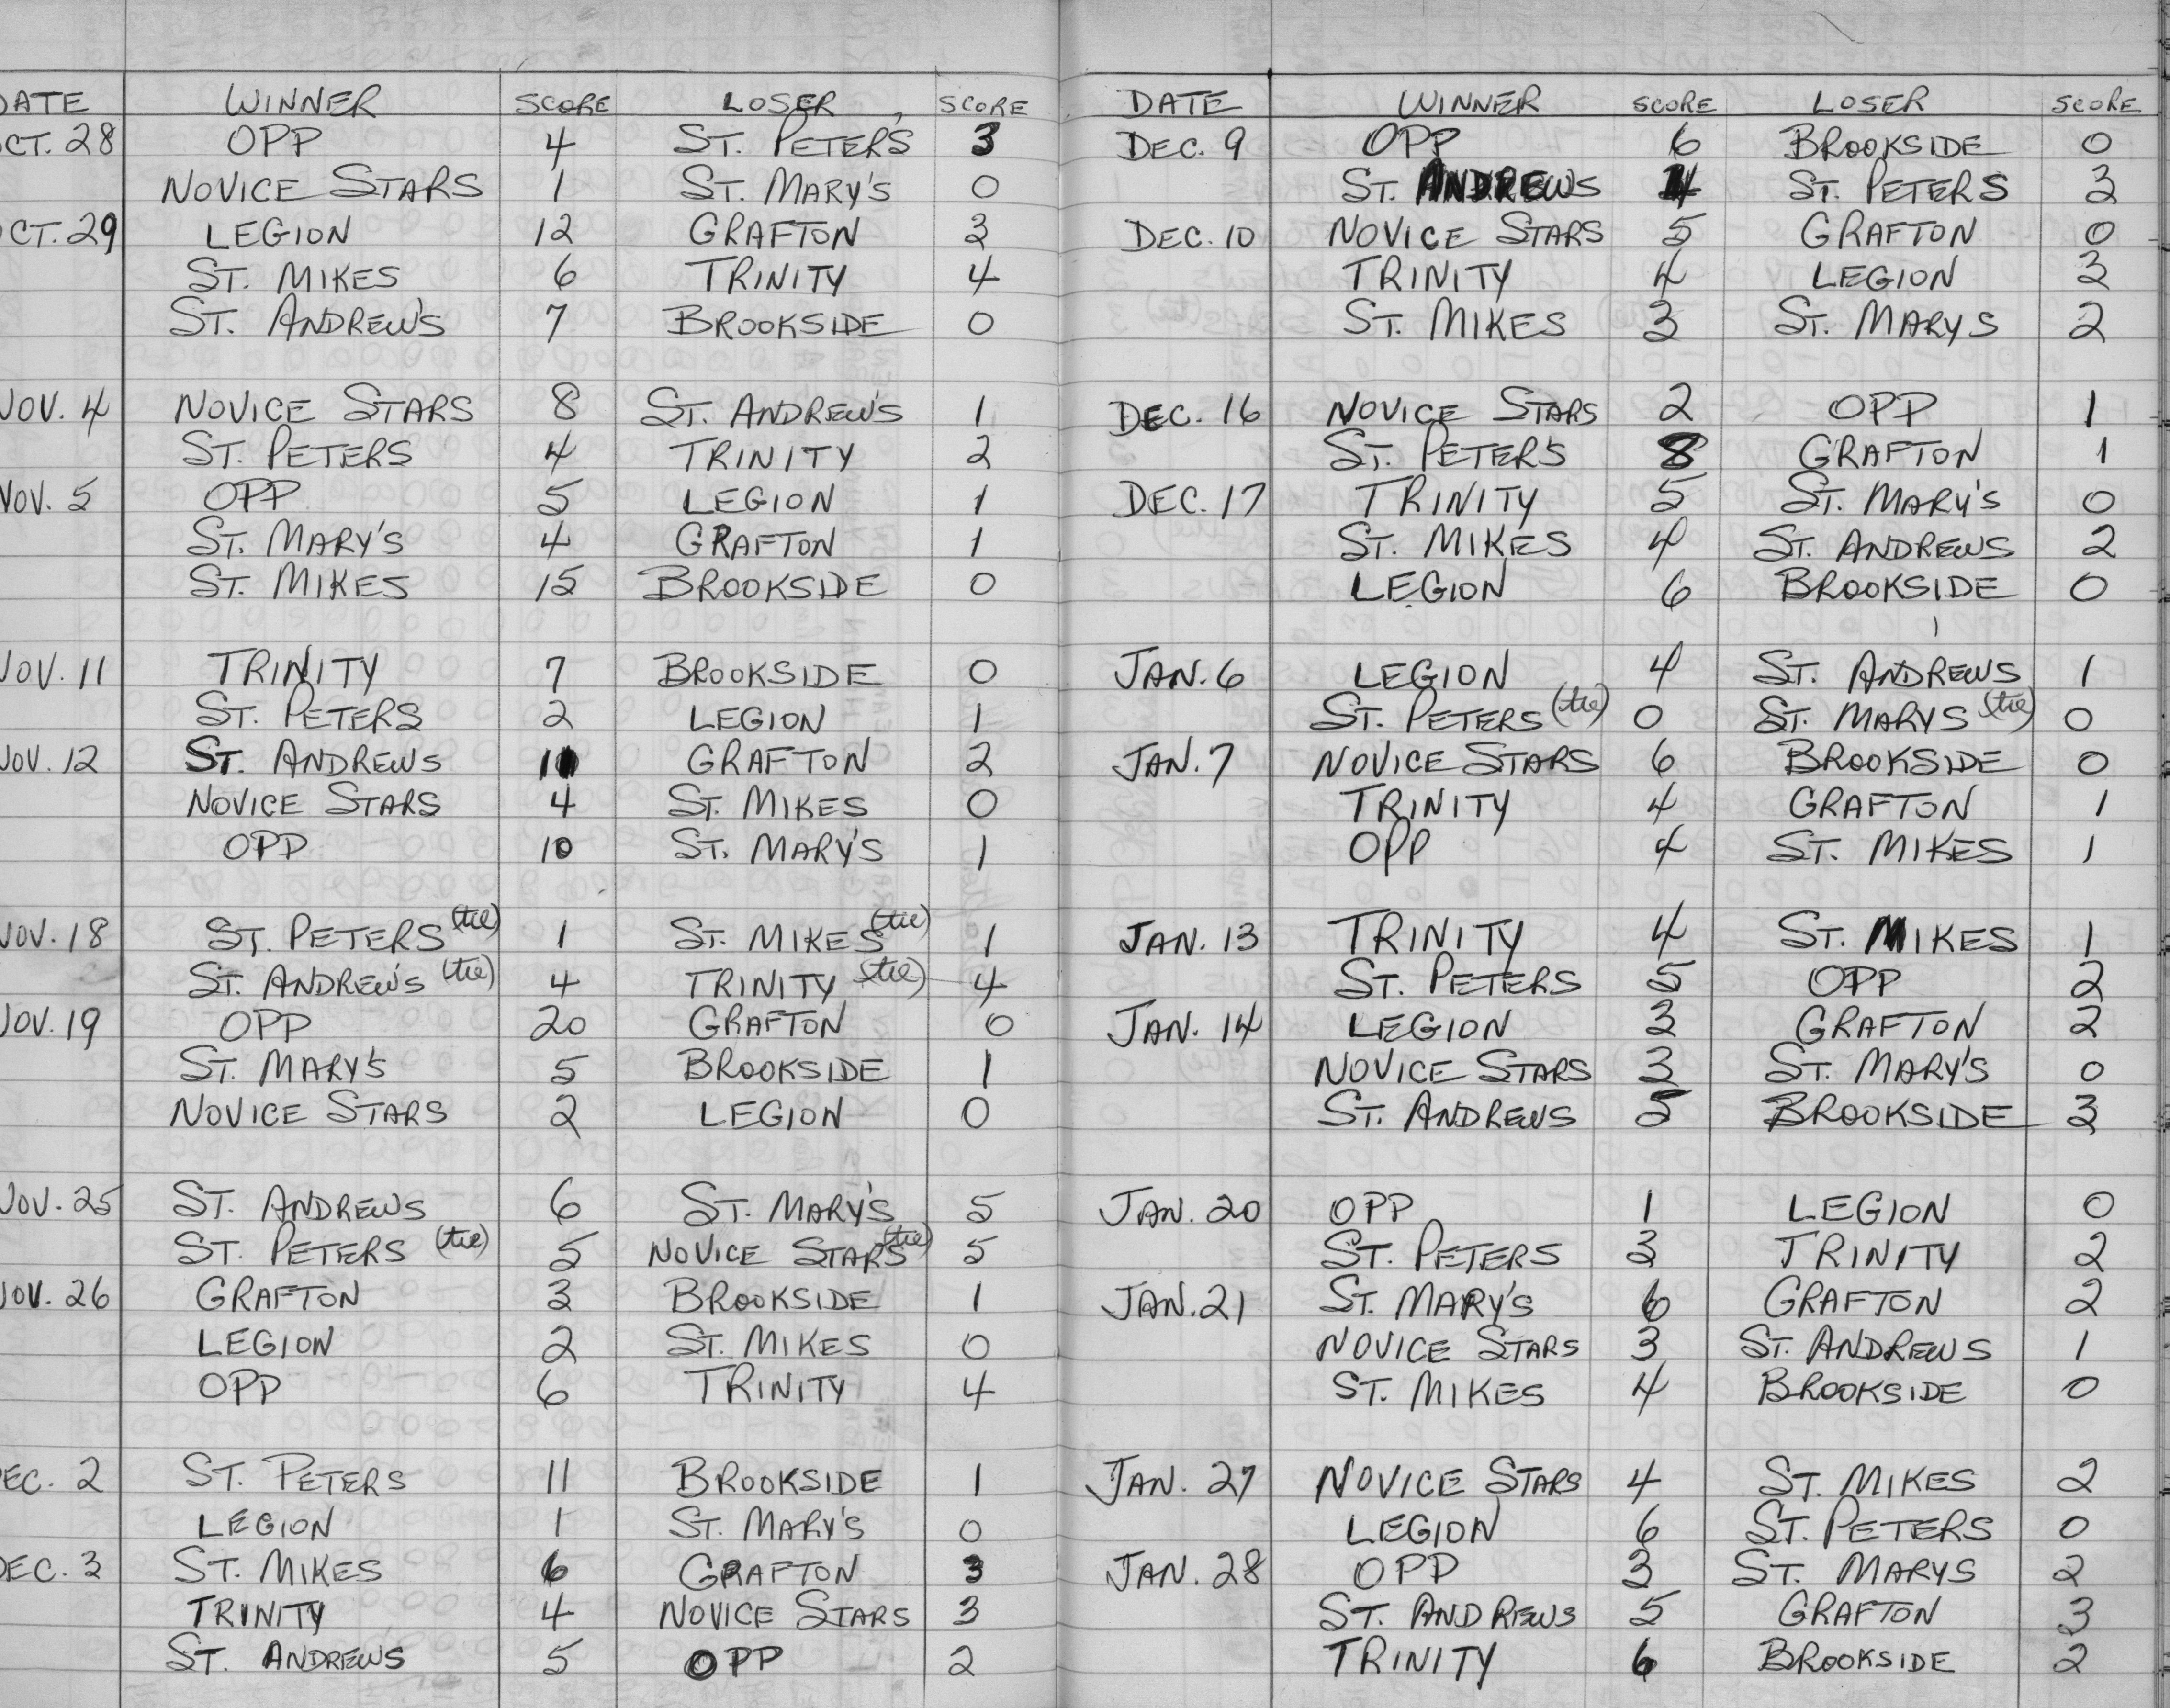 DATE WINNER SCORE LOSER SCORE
OCT. 28 OPP 4 ST. PETER'S 3
NOVICE STARS 1 ST. MARY'S 0
OCT. 29 LEGION 12 GRAFTON 3
ST. MIKES 6 TRINITY 4
ST. ANDREW'S 7 BROOKSIDE 0
NOV. 4 NOVICE STARS 8 ST. ANDREW'S 1
ST. PETERS 4 TRINITY 2
NOV. 5 OPP 5 LEGION 1
ST. MARY'S 4 GRAFTON 1
ST. MIKES 15 BROOKSIDE 0
NOV. 11 TRINITY 7 BROOKSIDE 0
ST. PETERS 2 LEGION 1
NOV. 12 ST. ANDREWS 11 GRAFTON 2
NOVICE STARS 4 ST. MIKES 0
OPP 10 ST. MARY'S 1
NOV. 18 ST. PETERS (tie) 1 ST. MIKES (tie) 1
ST. ANDREW'S (tie) 4 TRINITY (tie) 4
NOV. 19 OPP 20 GRAFTON 0
ST. MARY'S 5 BROOKSIDE 1
NOVICE STARS 2 LEGION 0
NOV. 25 ST. ANDREWS 6 ST. MARY'S 5
ST. PETERS (tie) 5 NOVICE STARS (tie) 5
NOV. 26 GRAFTON 3 BROOKSIDE 1
LEGION 2 ST. MIKES 0
OPP 6 TRINITY 4
DEC. 2 ST. PETERS 11 BROOKSIDE 1
LEGION 1 ST. MARY'S 0
DEC. 3 ST. MIKES 6 GRAFTON 3
TRINITY 4 NOVICE STARS 3
ST. ANDREWS 5 OPP 2
DATE WINNER SCORE LOSER SCORE
DEC. 9 OPP 6 BROOKSIDE 0
ST. ANDREWS 4 ST. PETERS 3
DEC. 10 NOVICE STARS 5 GRAFTON 0
TRINITY 4 LEGION 3
ST. MIKES 3 ST. MARYS 2
DEC. 16 NOVICE STARS 2 OPP 1
ST. PETER'S 8 GRAFTON 1
DEC. 17 TRINITY 5 ST. MARY'S 0
ST. MIKES 4 ST. ANDREWS 2
LEGION 6 BROOKSIDE 0
JAN. 6 LEGION 4 ST. ANDREWS 1
ST. PETERS (tie) 0 ST. MARYS (tie) 0
JAN. 7 NOVICE STARS 6 BROOKSIDE 0
TRINITY 4 GRAFTON 1
OPP 4 ST. MIKES 1
JAN. 13 TRINITY 4 ST. MIKES 1
ST. PETERS 5 OPP 2
JAN. 14 LEGION 3 GRAFTON 2
NOVICE STARS 3 ST. MARY'S 0
ST. ANDREWS 5 BROOKSIDE 3
JAN. 20 OPP 1 LEGION 0
ST. PETERS 3 TRINITY 2
JAN. 21 ST. MARY'S 6 GRAFTON 2
NOVICE STARS 3 ST. ANDREWS 1
ST. MIKES 4 BROOKSIDE 0
JAN. 27 NOVICE STARS 4 ST. MIKES 2
LEGION 6 ST. PETERS 0
JAN. 28 OPP 3 ST. MARYS 2
ST. ANDREWS 5 GRAFTON 3
TRINITY 6 BROOKSIDE 2